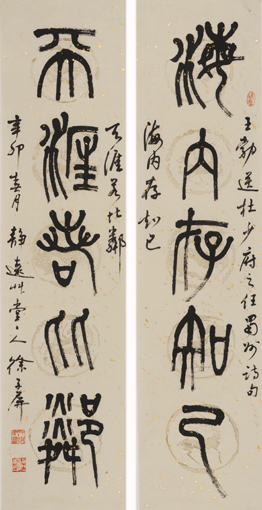 王勃送杜少府之任蜀州詩句
海内存知己
海内存知己
天涯若比鄰
天涯若比鄰
辛卯春月靜遠艸堂主人徐子屏